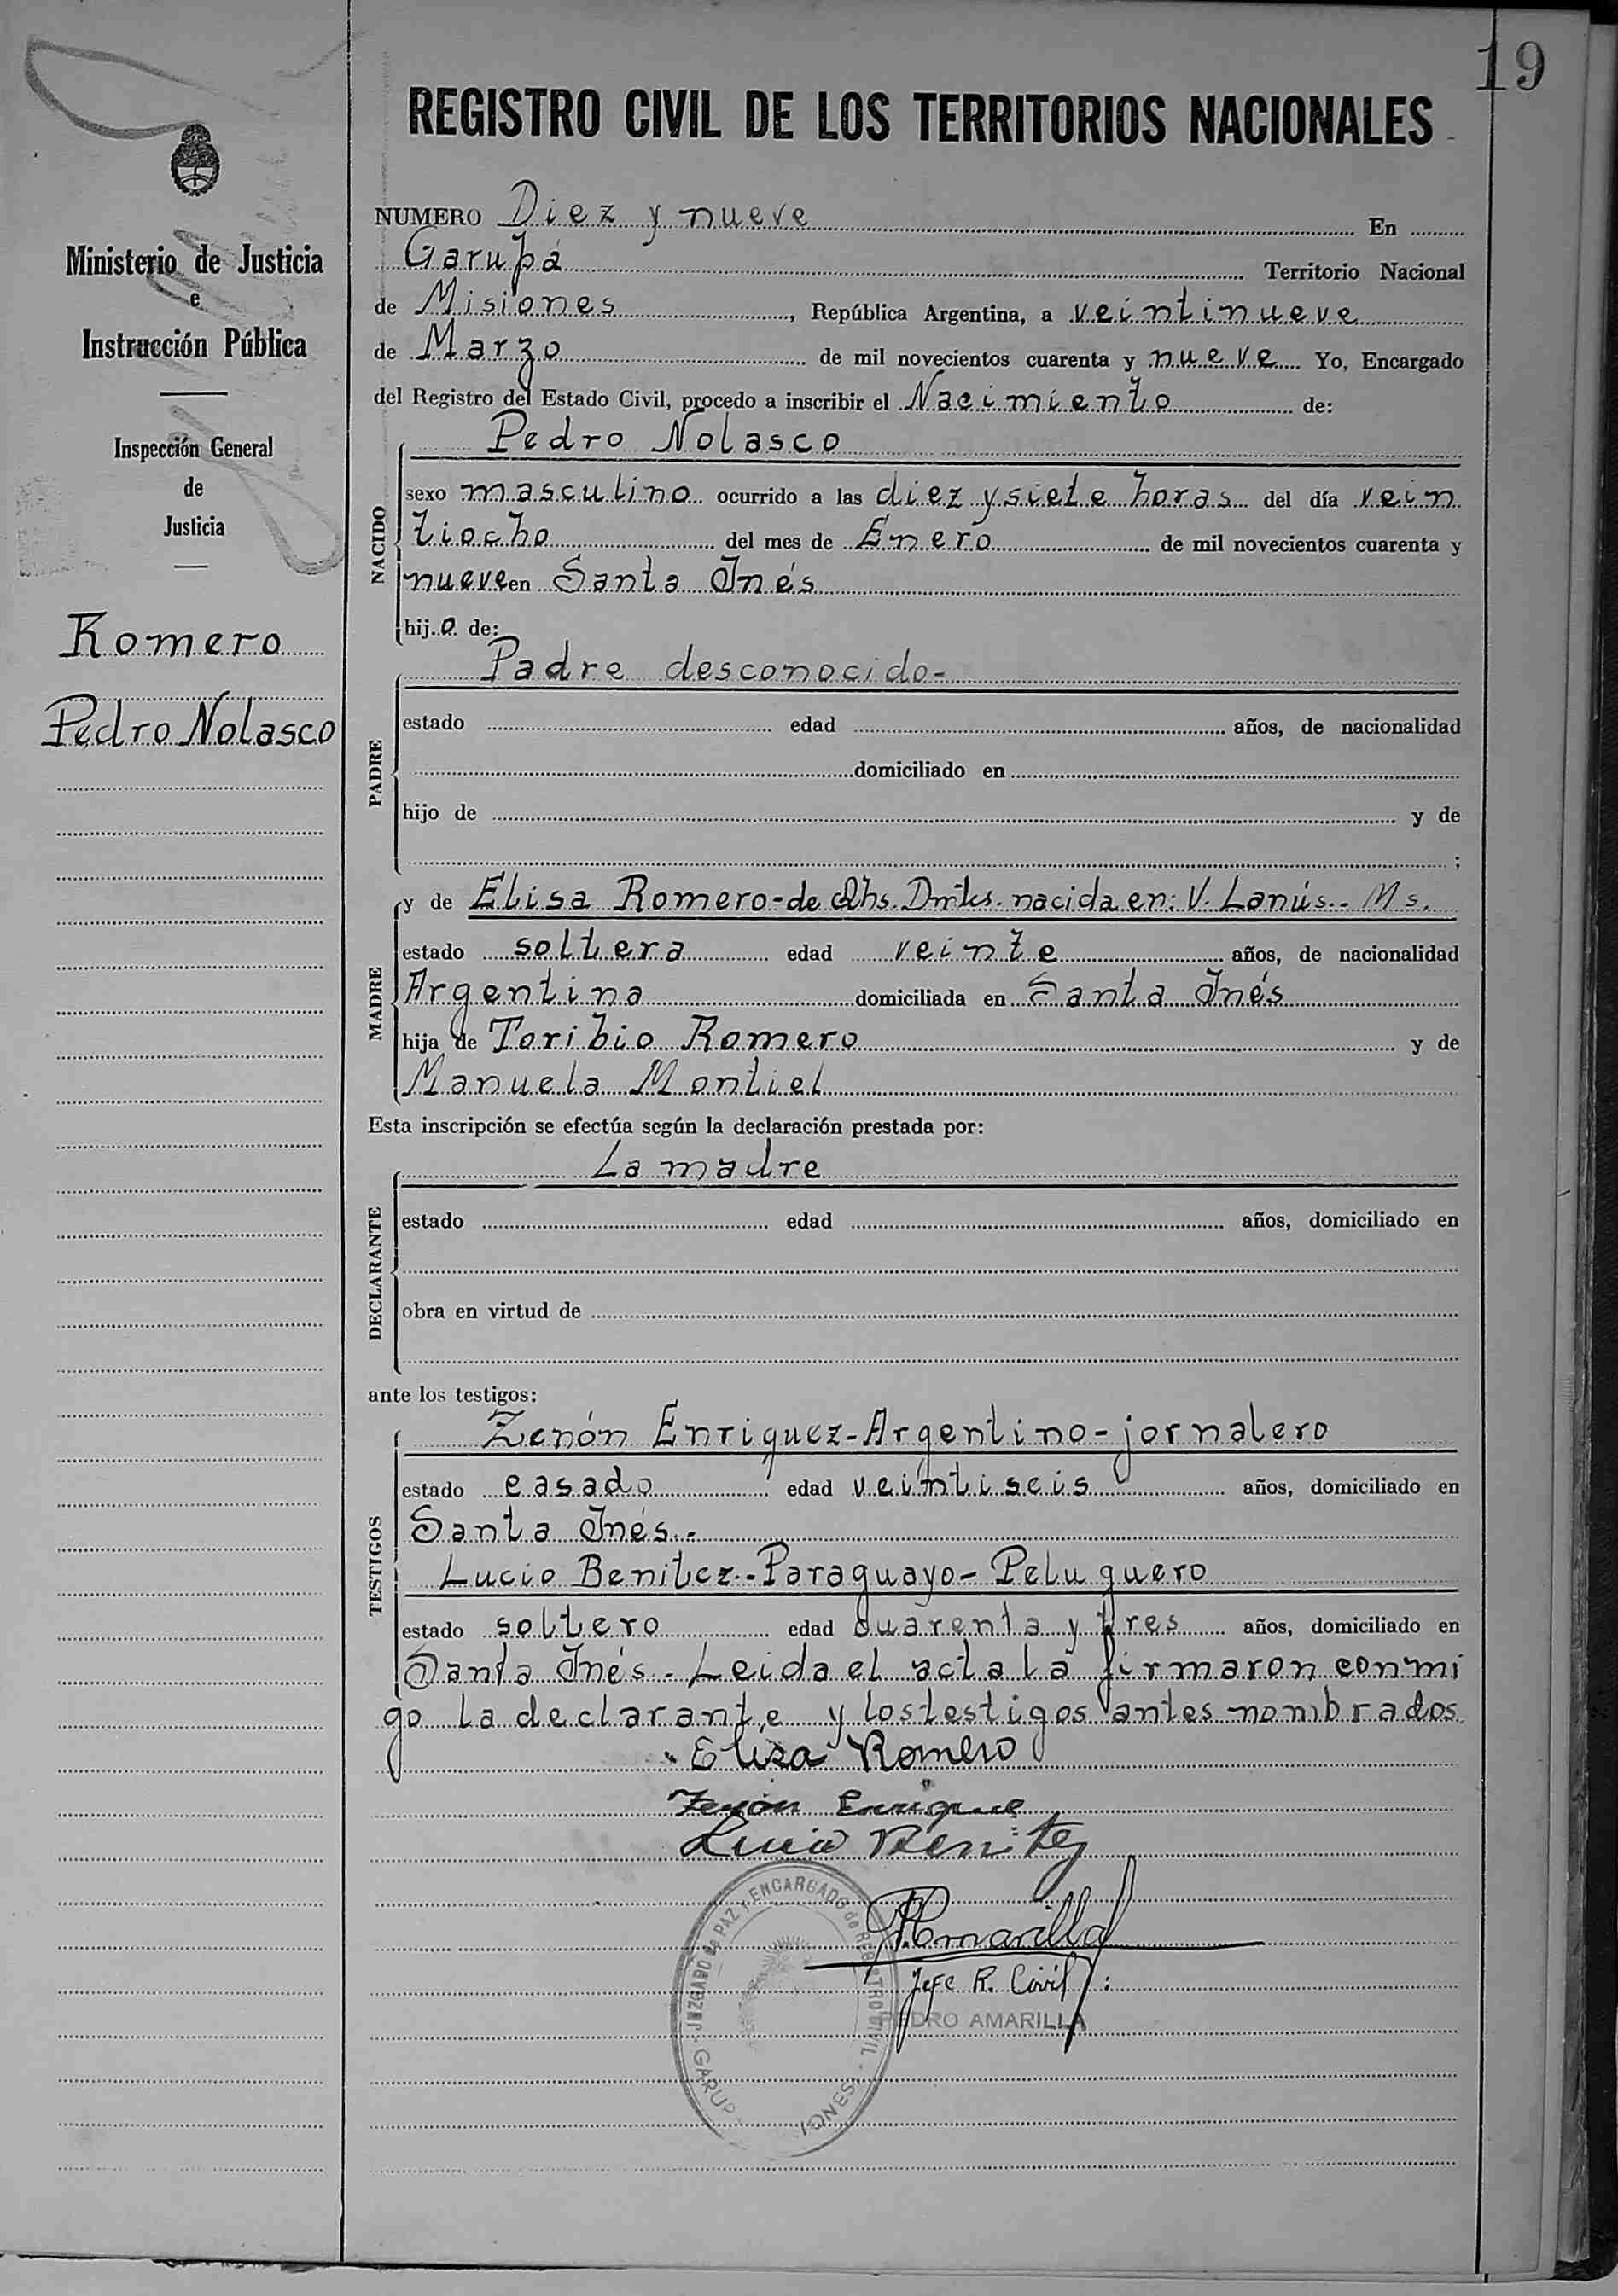 19
REGISTRO CIVIL DE LOS TERRITORIOS NACIONALES
Ministerio de Justicia
e
Instrucción Pública
Inspección General
de
Justicia
Romero
Pedro Nolasco
NUMERO Diez y nueve En
Garupá Territorio Nacional
de Misiones, República Argentina, a veintinueve
de Marzo de mil novecientos cuarenta y nueve Yo, Encargado
del Registro del Estado Civil, procedo a inscribir el Nacimiento de:
NACIDO
Pedro Nolasco
sexo masculino ocurrido a las diez y siete horas del día vein
tiocho del mes de Enero de mil novecientos cuarenta y
nueve en Santa Inés
hijo de:
PADRE
Padre desconocido-
estado edad años, de nacionalidad
domiciliado en
hijo de y de
;
MADRE
y de Elisa Romero-de Qhs. Dmtes. nacida en: V. Lanús.- Ms.
estado soltera edad veinte años, de nacionalidad
Argentina domiciliada en Santa Inés
hija de Toribio Romero y de
Manuela Montiel
Esta inscripción se efectúa según la declaración prestada por:
DECLARANTE
La madre
estado edad años, domiciliado en
obra en virtud de
ante los testigos:
TESTIGOS
Zenón Enriquez-Argentino-jornalero
estado casado edad veintiseis años, domiciliado en
Santa Inés.-
Lucio Benitez.-Paraguayo-Peluquero
estado soltero edad cuarenta y tres años, domiciliado en
Santa Inés.- Leida el acta la firmaron conmi
go la declarante y los testigos antes nombrados.
Elisa Romero
Zenón Enrique
Lucio Benitez
P. Amarilla
Jefe R. Civil
PEDRO AMARILLA
JUZGADO de PAZ Y ENCARGADO de REGISTRO CIVIL